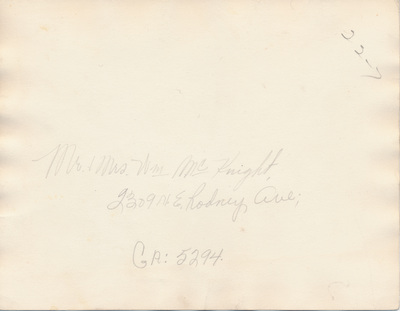 227
Mr. & Mrs. Wm. McKnight,
E. Rodney, Ave;
GA: 5294.